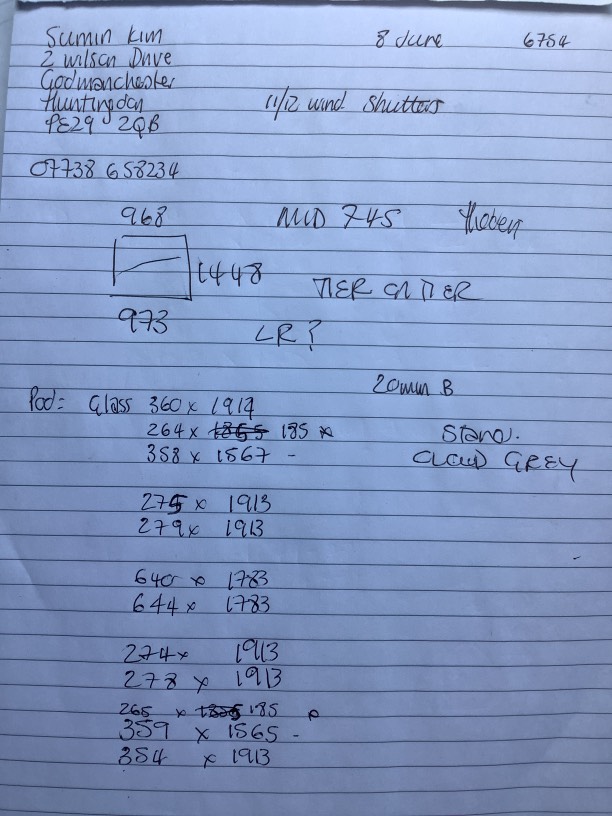 Sumin Kim 8 June 6754
2 Wilson Drive
Godmanchester
Huntingdon 11/12 wind Shutters
PE29 2QB
07738 658234
968 MID 745
1448 TIER ON TIER
973
LR?
20mm B
Pod= Glass 360 x 1914
264 x 1865 185 x Stand.
358 x 1567 - CLOUD GREY
275 x 1913
279 x 1913
640 x 1783
644 x 1783
274 x 1913
278 x 1913
265 x 185
359 x 1565 -
354 x 1913